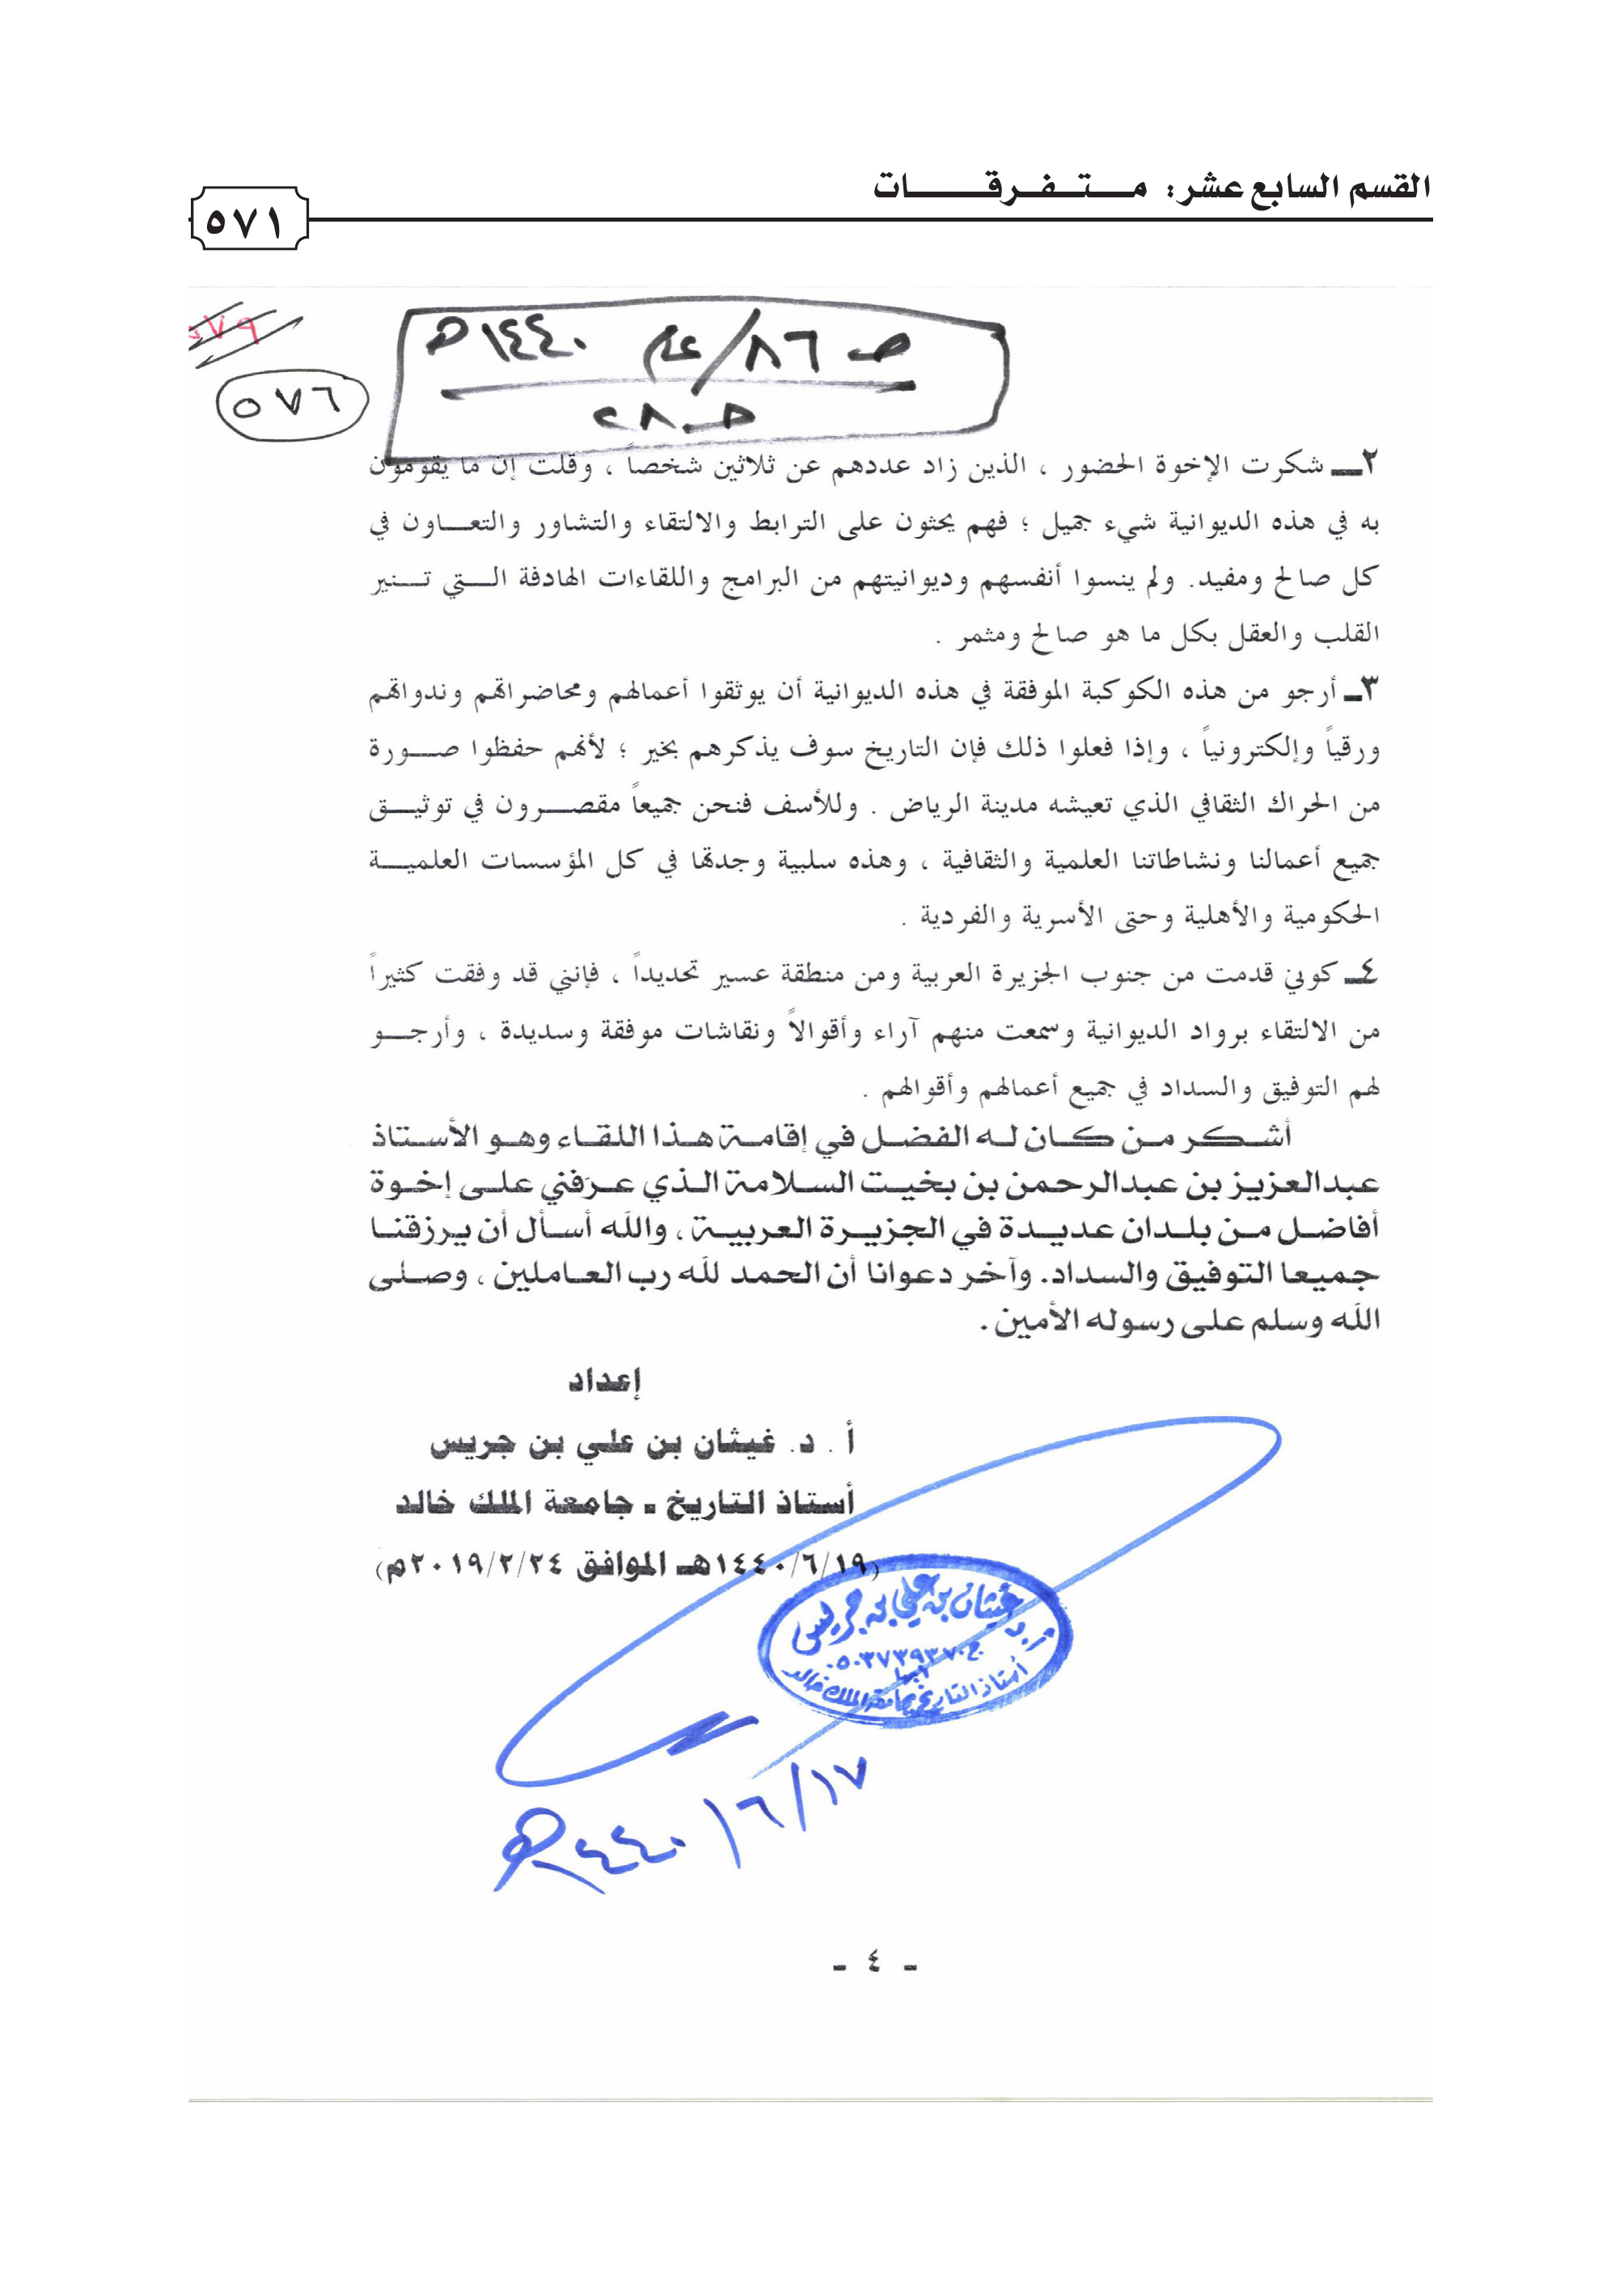 القسم السابع عشر: متفرقات
٥٧١
٥٧٩
٥٧٦
صـ ٨٦ / عام ١٤٤٠هـ
صـ ٢٨
٢ـ شكرت الإخوة الحضور ، الذين زاد عددهم عن ثلاثين شخصاً ، وقلت إن ما يقومون
به في هذه الديوانية شيء جميل ؛ فهم يحثون على الترابط والالتقاء والتشاور والتعاون في
كل صالح ومفيد. ولم ينسوا أنفسهم وديوانيتهم من البرامج واللقاءات الهادفة التي تنير
القلب والعقل بكل ما هو صالح ومثمر .
٣ـ أرجو من هذه الكوكبة الموفقة في هذه الديوانية أن يوثقوا أعمالهم ومحاضراتهم وندواتهم
ورقياً وإلكترونياً ، وإذا فعلوا ذلك فإن التاريخ سوف يذكرهم بخير ؛ لأنهم حفظوا صورة
من الحراك الثقافي الذي تعيشه مدينة الرياض . وللأسف فنحن جميعاً مقصرون في توثيق
جميع أعمالنا ونشاطاتنا العلمية والثقافية ، وهذه سلبية وجدتها في كل المؤسسات العلمية
الحكومية والأهلية وحتى الأسرية والفردية .
٤ـ كوني قدمت من جنوب الجزيرة العربية ومن منطقة عسير تحديداً ، فإنني قد وفقت كثيراً
من الالتقاء برواد الديوانية وسمعت منهم آراء وأقوالاً ونقاشات موفقة وسديدة ، وأرجو
لهم التوفيق والسداد في جميع أعمالهم وأقوالهم .
أشكر من كان له الفضل في إقامة هذا اللقاء وهو الأستاذ
عبدالعزيز بن عبدالرحمن بن بخيت السلامة الذي عرفني على إخوة
أفاضل من بلدان عديدة في الجزيرة العربية ، والله أسأل أن يرزقنا
جميعا التوفيق والسداد. وآخر دعوانا أن الحمد لله رب العاملين ، وصلى
الله وسلم على رسوله الأمين .
إعداد
أ . د. غيثان بن علي بن جريس
أستاذ التاريخ ـ جامعة الملك خالد
(١٤٤٠/٦/١٩هـ الموافق ٢٠١٩/٢/٢٤م)
أ. د غيثان بن علي بن جريس
ج٠٥٠٣٧٣٩٣٧٠
أبها
أستاذ التاريخ بجامعة الملك خالد
١٧/٦/١٤٤٠هـ
- ٤ -